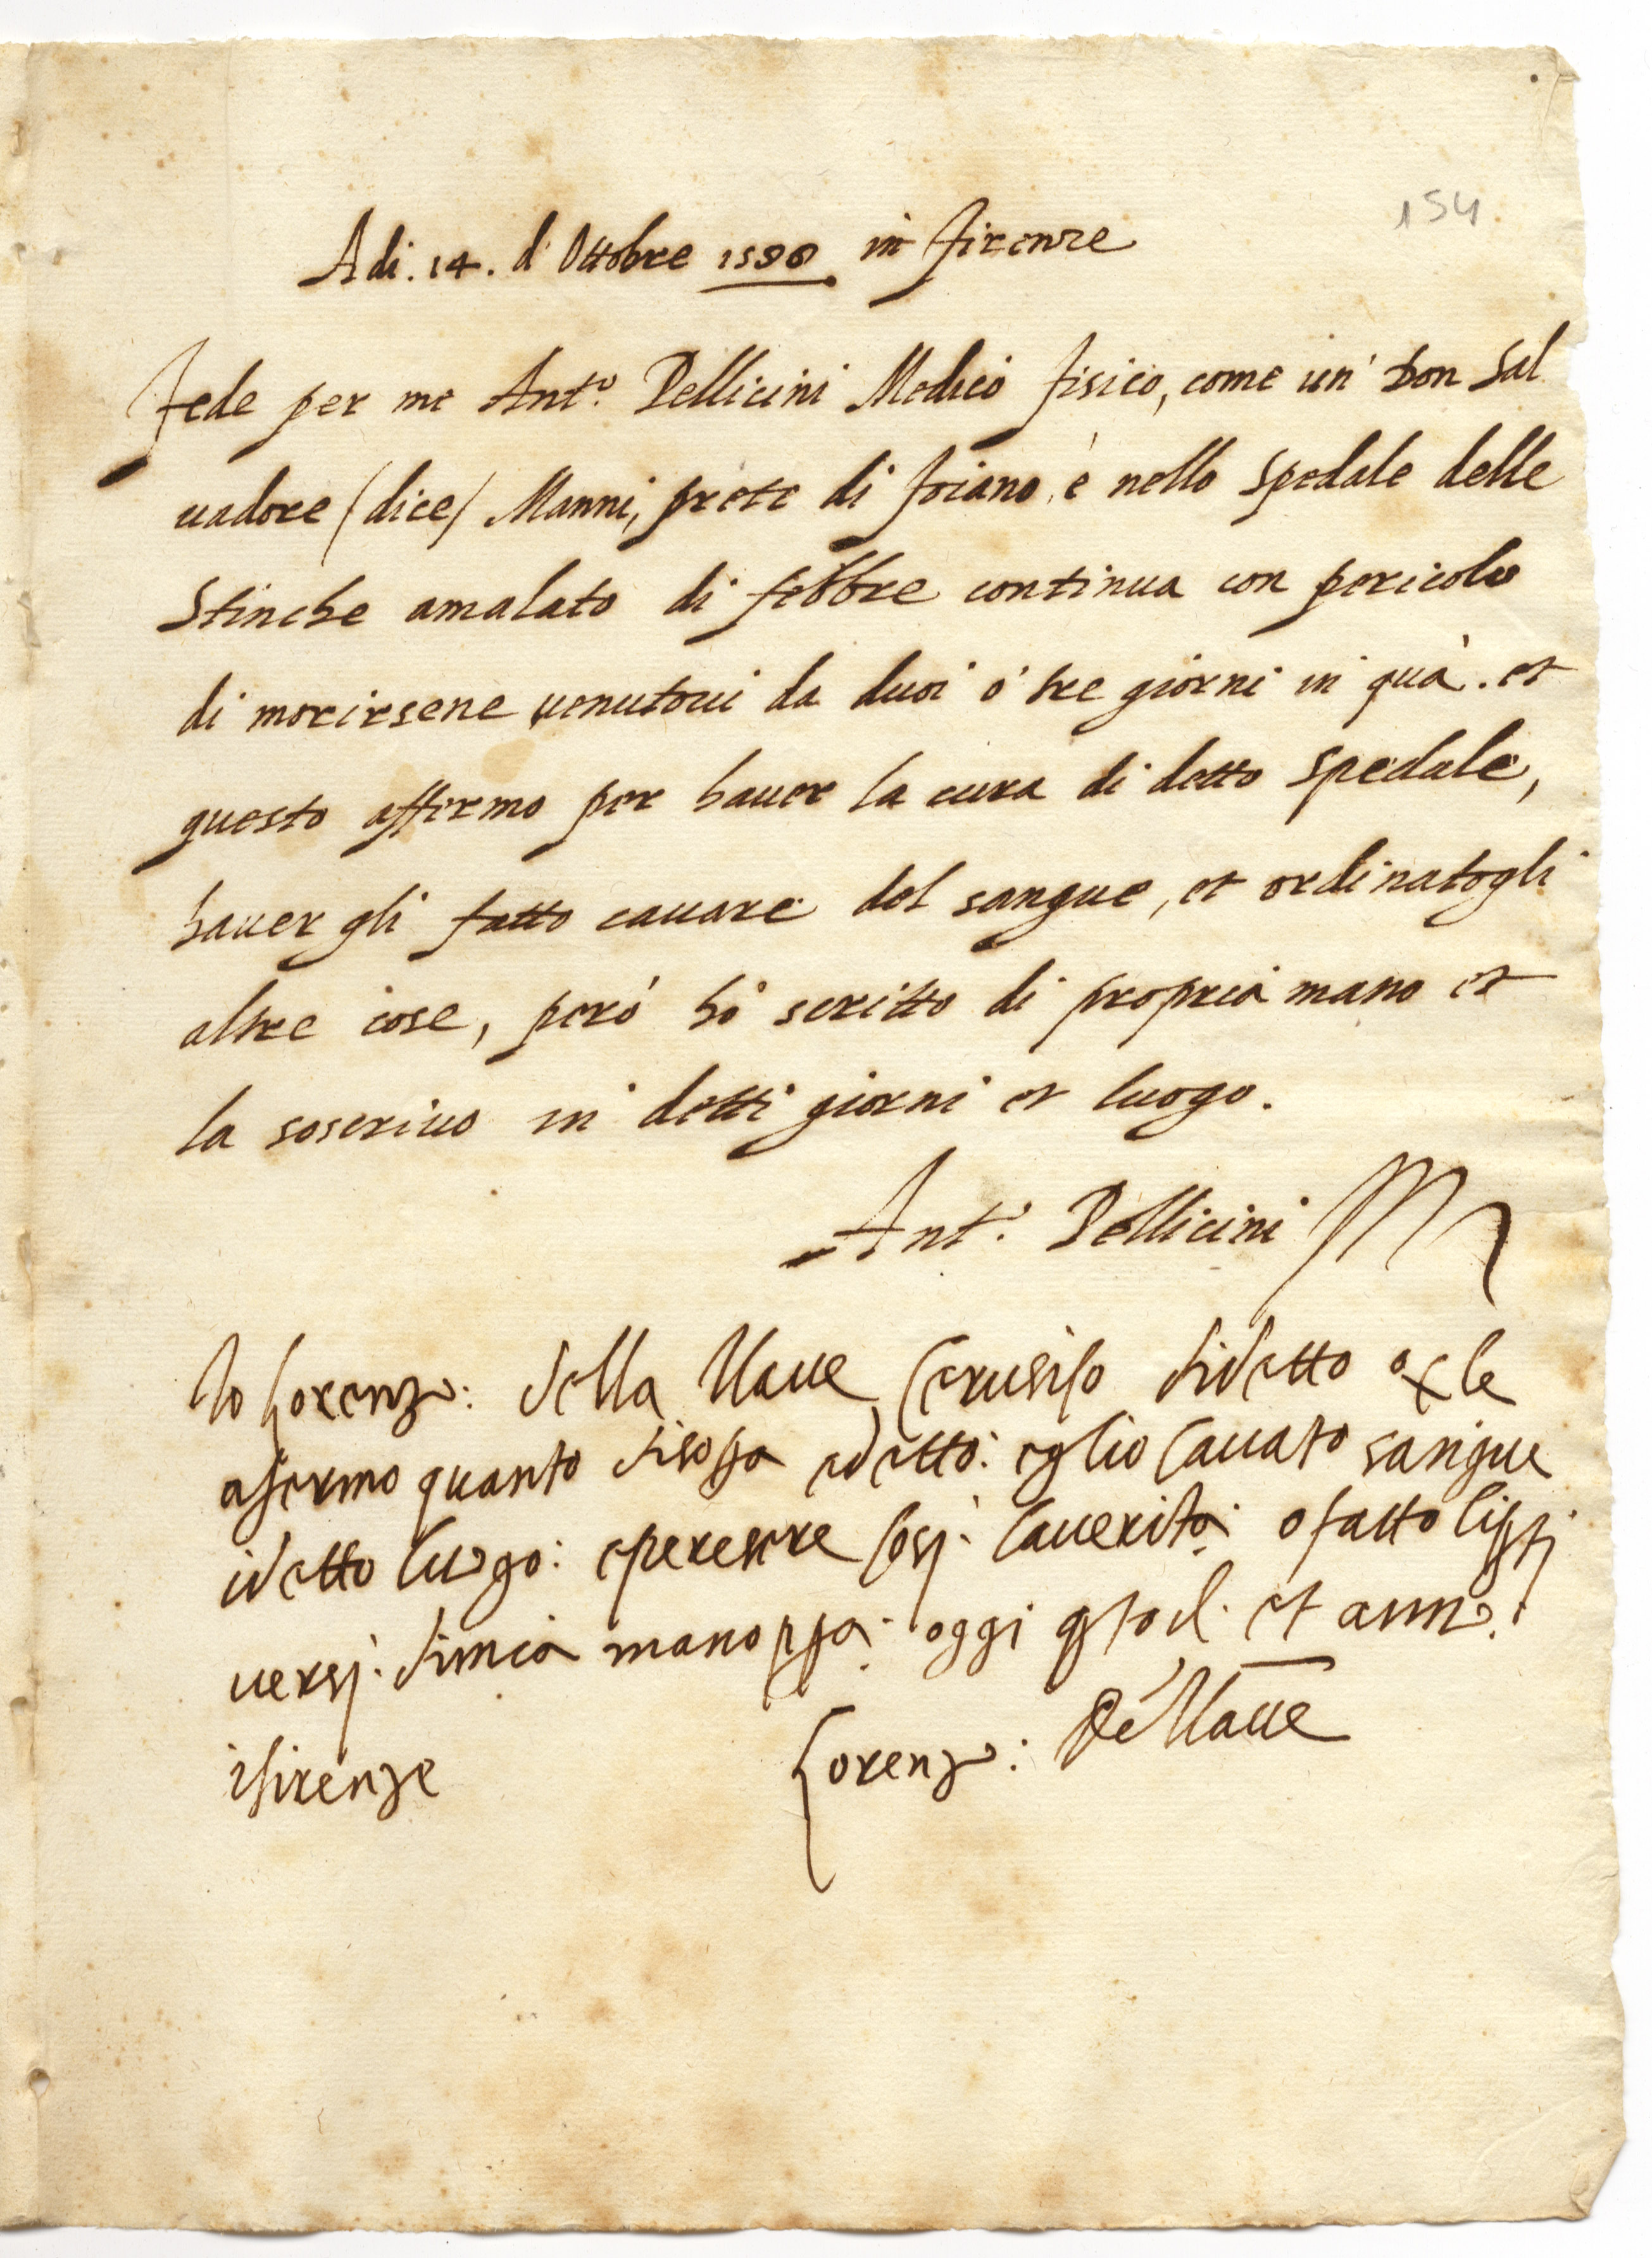 154
Adi. 14. d Ottobre 1590 in firenze
fede per me Ant.º Pellicini Medico fisico, come un' Don Sal
uadore /dice/ Manni, prete di foiano è nello spedale delle
Stinche amalato di febbre continua con pericolo
di morirsene uenutoui da duoi ò tre giorni in quà. et
questo affermo per hauer la cura di detto spedale,
hauer gli fatto cauare del sangue, et ordinatogli
altre cose, però hò scritto di propria mano et
la soscriuo in detti giorni et luogo.
Ant.º Pellicini
Io Lorenzo: della Naue Cerusiho didetto
afermo quanto disopra edetto: eglio Cauato sangue
idetto luogo: eperesere Cosj. Lauerita: o fatto
uersj. dimia mano ppa: oggi et anno:
ifirenze Lorenzo: De Naue